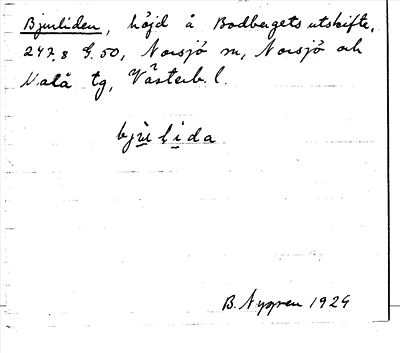 Bjurliden, höjd å Bodbergets utskifte,
247.8 G. 50, Norsjö sn, Norsjö och
Malå tg, Västerb. l.
bju̱ li̱da
B. Nygren 1924